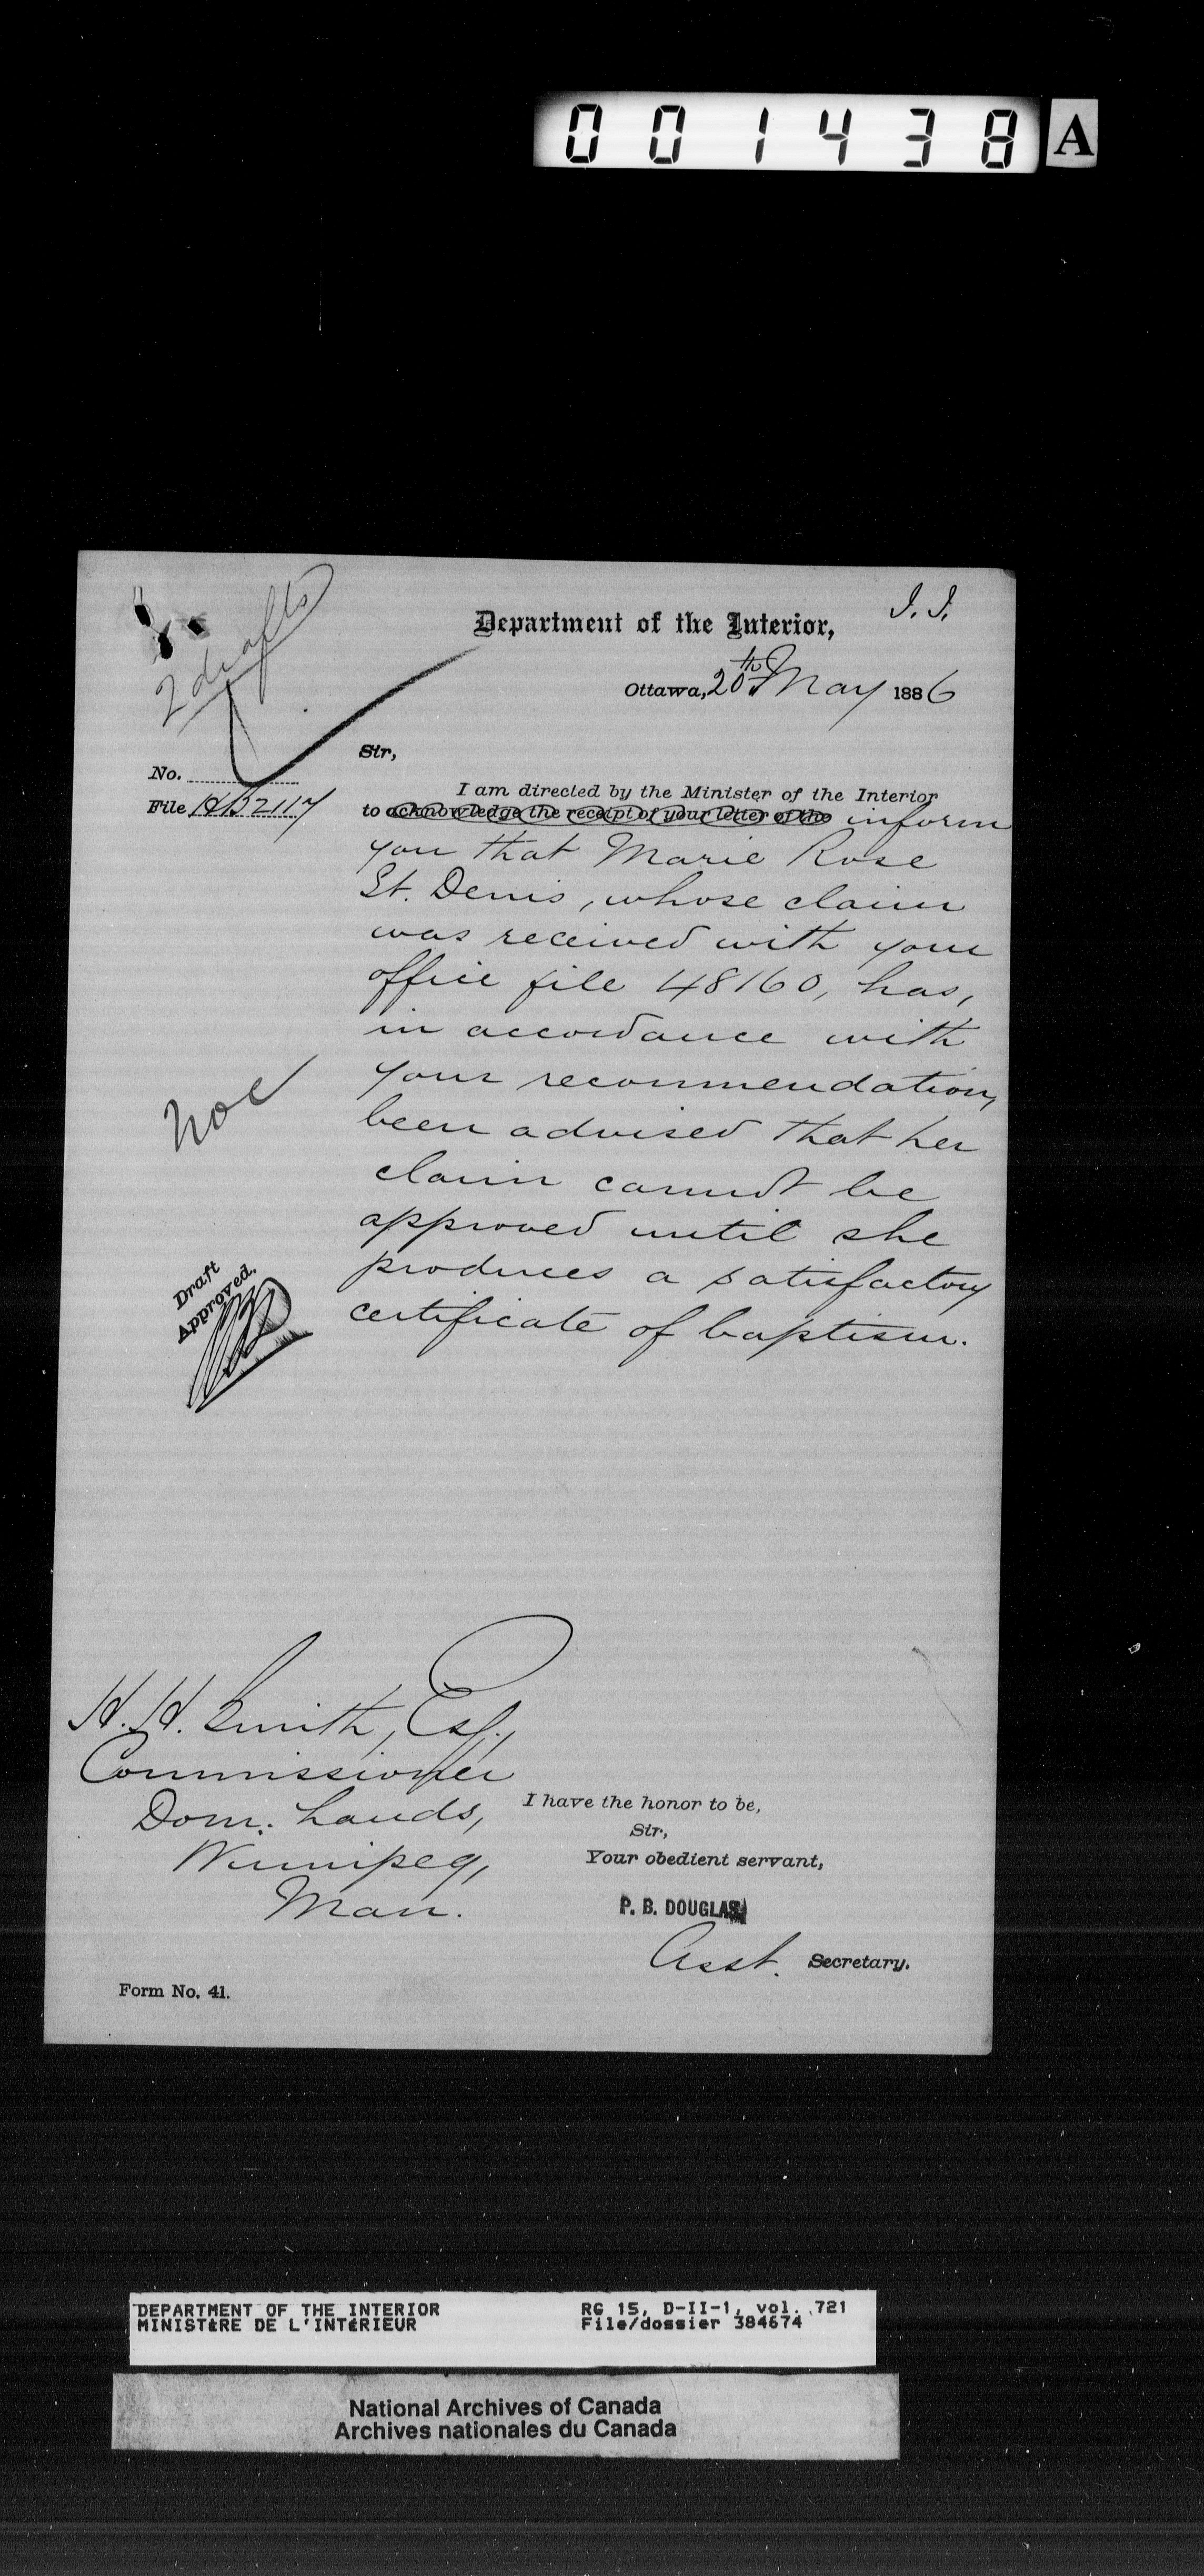 001438 A
2 drafts
J. J.
Department of the Interior,
Ottawa, 20th May 1886
Sir,
No.
File HB2117
I am directed by the Minister of the Interior
to acknowledge the receipt of your letter of the inform
you that Marie Rose
St. Denis, whose claim
was received with your
office file 48160, has,
in accordance with
your recommendation,
been advised that her
claim cannot be
approved until she
produces a satisfactory
certificate of baptism.
Draft
Approved.
H. H. Smith, Esq.,
Commissioner
Dom. Lands,
Winnipeg,
Man.
I have the honor to be,
Sir,
Your obedient servant,
P. B. DOUGLAS
Asst. Secretary.
Form No. 41.
DEPARTMENT OF THE INTERIOR RG 15, D-II-1, vol. 721
MINISTÈRE DE L'INTÉRIEUR File/dossier 384674
National Archives of Canada
Archives nationales du Canada